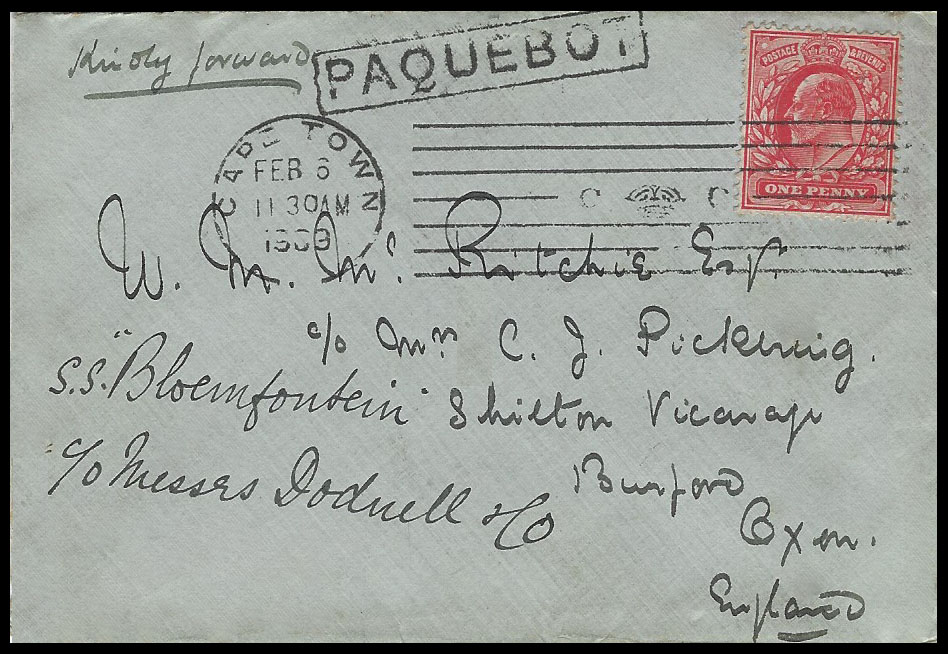 Kindly forward
PAQUEBOT
POSTAGE & REVENUE
ONE PENNY
CAPE TOWN
FEB 6
11 30AM
1909
C C
W. M. Mc Ritchie Esq.
c/o Mrs C. J. Pickering.
S.S. "Bloemfontein" Shilton Vicarage
c/o Messrs Dodwell & Co Burford
Oxon.
England